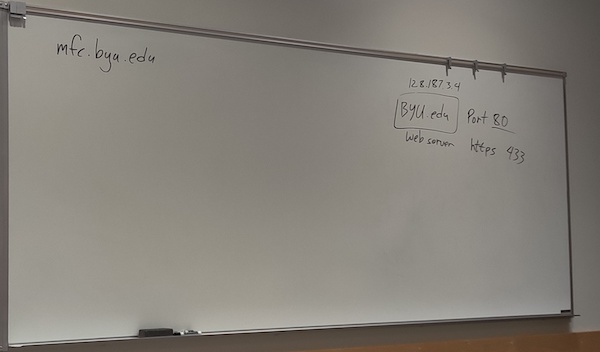 mfc.byu.edu
128.187.3.4
BYU.edu Port 80
web server https 433